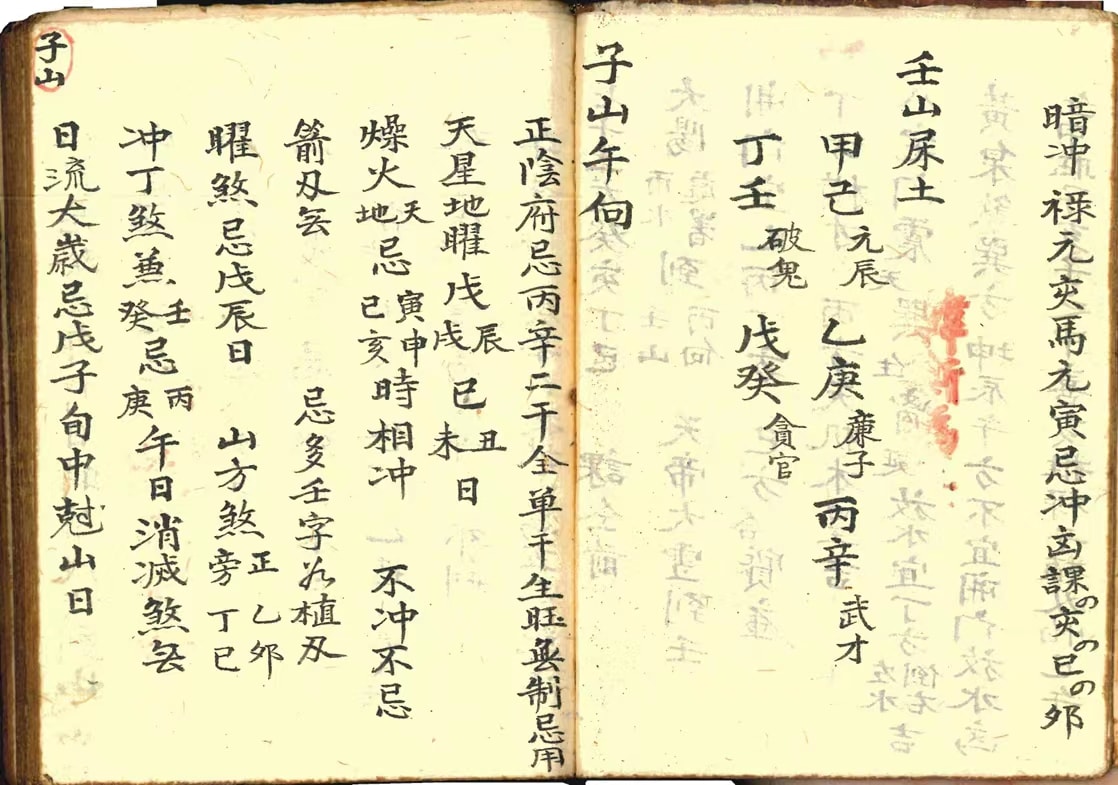 暗冲禄元灾馬元寅忌冲㐫課の灾の巳の夘
壬山杘土
甲己元辰 乙庚亷子 丙辛武才
丁壬破鬼 戊癸貪官
子山午向
正陰府忌丙辛二干全单干生旺無制忌用
天星地曜戊辰戌巳丑未日
燥火天地忌寅申巳亥時相冲 不冲不忌
箭刃 忌多壬字为植刃
曜煞忌戊辰日 山方煞正乙夘旁丁巳
冲丁煞兼壬癸忌丙庚午日消滅煞
日流太歲忌戊子旬中尅山日
子山